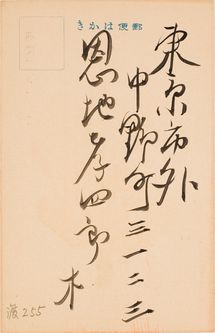 きかは便郵
東京市外
中野町三一二三
恩地孝四郎
渡255